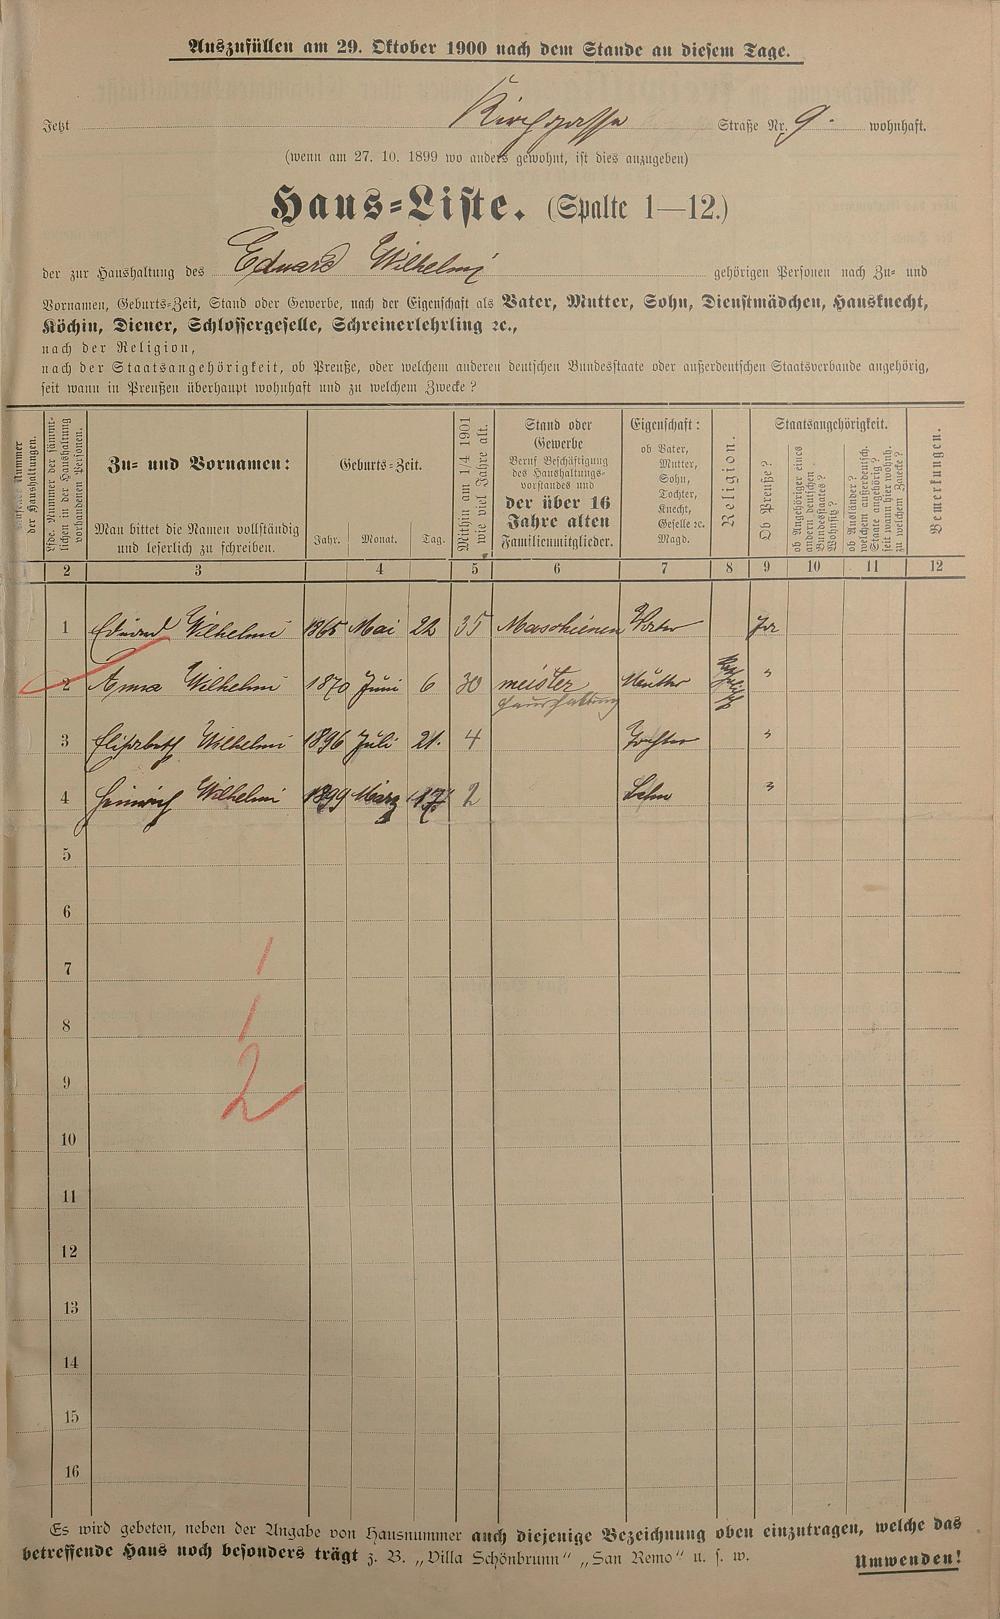 Auszufüllen am 29. Oktober 1900 nach dem Stande an diesem Tage.
Jetzt Kirchgasse Straße Nr. 9. wohnhaft.
(wenn am 27. 10. 1899 wo anders gewohnt, ist dies anzugeben)
Haus-Liste. (Spalte 1—12.)
der zur Haushaltung des Eduard Wilhelmi gehörigen Personen nach Zu- und
Vornamen, Geburts-Zeit, Stand oder Gewerbe, nach der Eigenschaft als Vater, Mutter, Sohn, Dienstmädchen, Hausknecht,
Köchin, Diener, Schlossergeselle, Schreinerlehrling ꝛc.,
nach der Religion,
nach der Staatsangehörigkeit, ob Preuße, oder welchem anderen deutschen Bundesstaate oder außerdeutschen Staatsverbande angehörig,
seit wann in Preußen überhaupt wohnhaft und zu welchem Zwecke?
Nummer
der Haushaltungen.
Lfde. Nummer der sämmt-
lichen in der Haushaltung
vorhandenen Personen.
Zu- und Vornamen:
Man bittet die Namen vollständig
und leserlich zu schreiben.
Geburts-Zeit.
Jahr. Monat. Tag.
Mithin am 1/4 1901
wie viel Jahre alt.
Stand oder
Gewerbe
Beruf Beschäftigung
des Haushaltungs-
vorstandes und
der über 16
Jahre alten
Familienmitglieder.
Eigenschaft:
ob Vater,
Mutter,
Sohn,
Tochter,
Knecht,
Geselle ꝛc.
Magd.
Religion.
Staatsangehörigkeit.
Ob Preuße?
ob Angehöriger eines
andern deutschen
Bundesstaates?
Wohnsitz?
ob Ausländer?
welchem außerdeutsch.
Staate angehörig?
seit wann hier wohnh.
zu welchem Zwecke?
Bemerkungen.
1 2 3 4 5 6 7 8 9 10 11 12
1 Eduard Wilhelmi 1865 Mai 22 35 Maschienen Vater Ja
2 Anna Wilhelmi 1870 Juni 6 30 meister Mutter "
Haushaltung
3 Elisabeth Wilhelmi 1896 Juli 21. 4 Tochter "
4 Heinrich Wilhelmi 1899 März 17. 2 Sohn "
5
6
7
8
9
10
11
12
13
14
15
16
1
1
2
Es wird gebeten, neben der Angabe von Hausnummer auch diejenige Bezeichnung oben einzutragen, welche das
betreffende Haus noch besonders trägt z. B. „Villa Schönbrunn“ „San Remo“ u. s. w.
Umwenden!